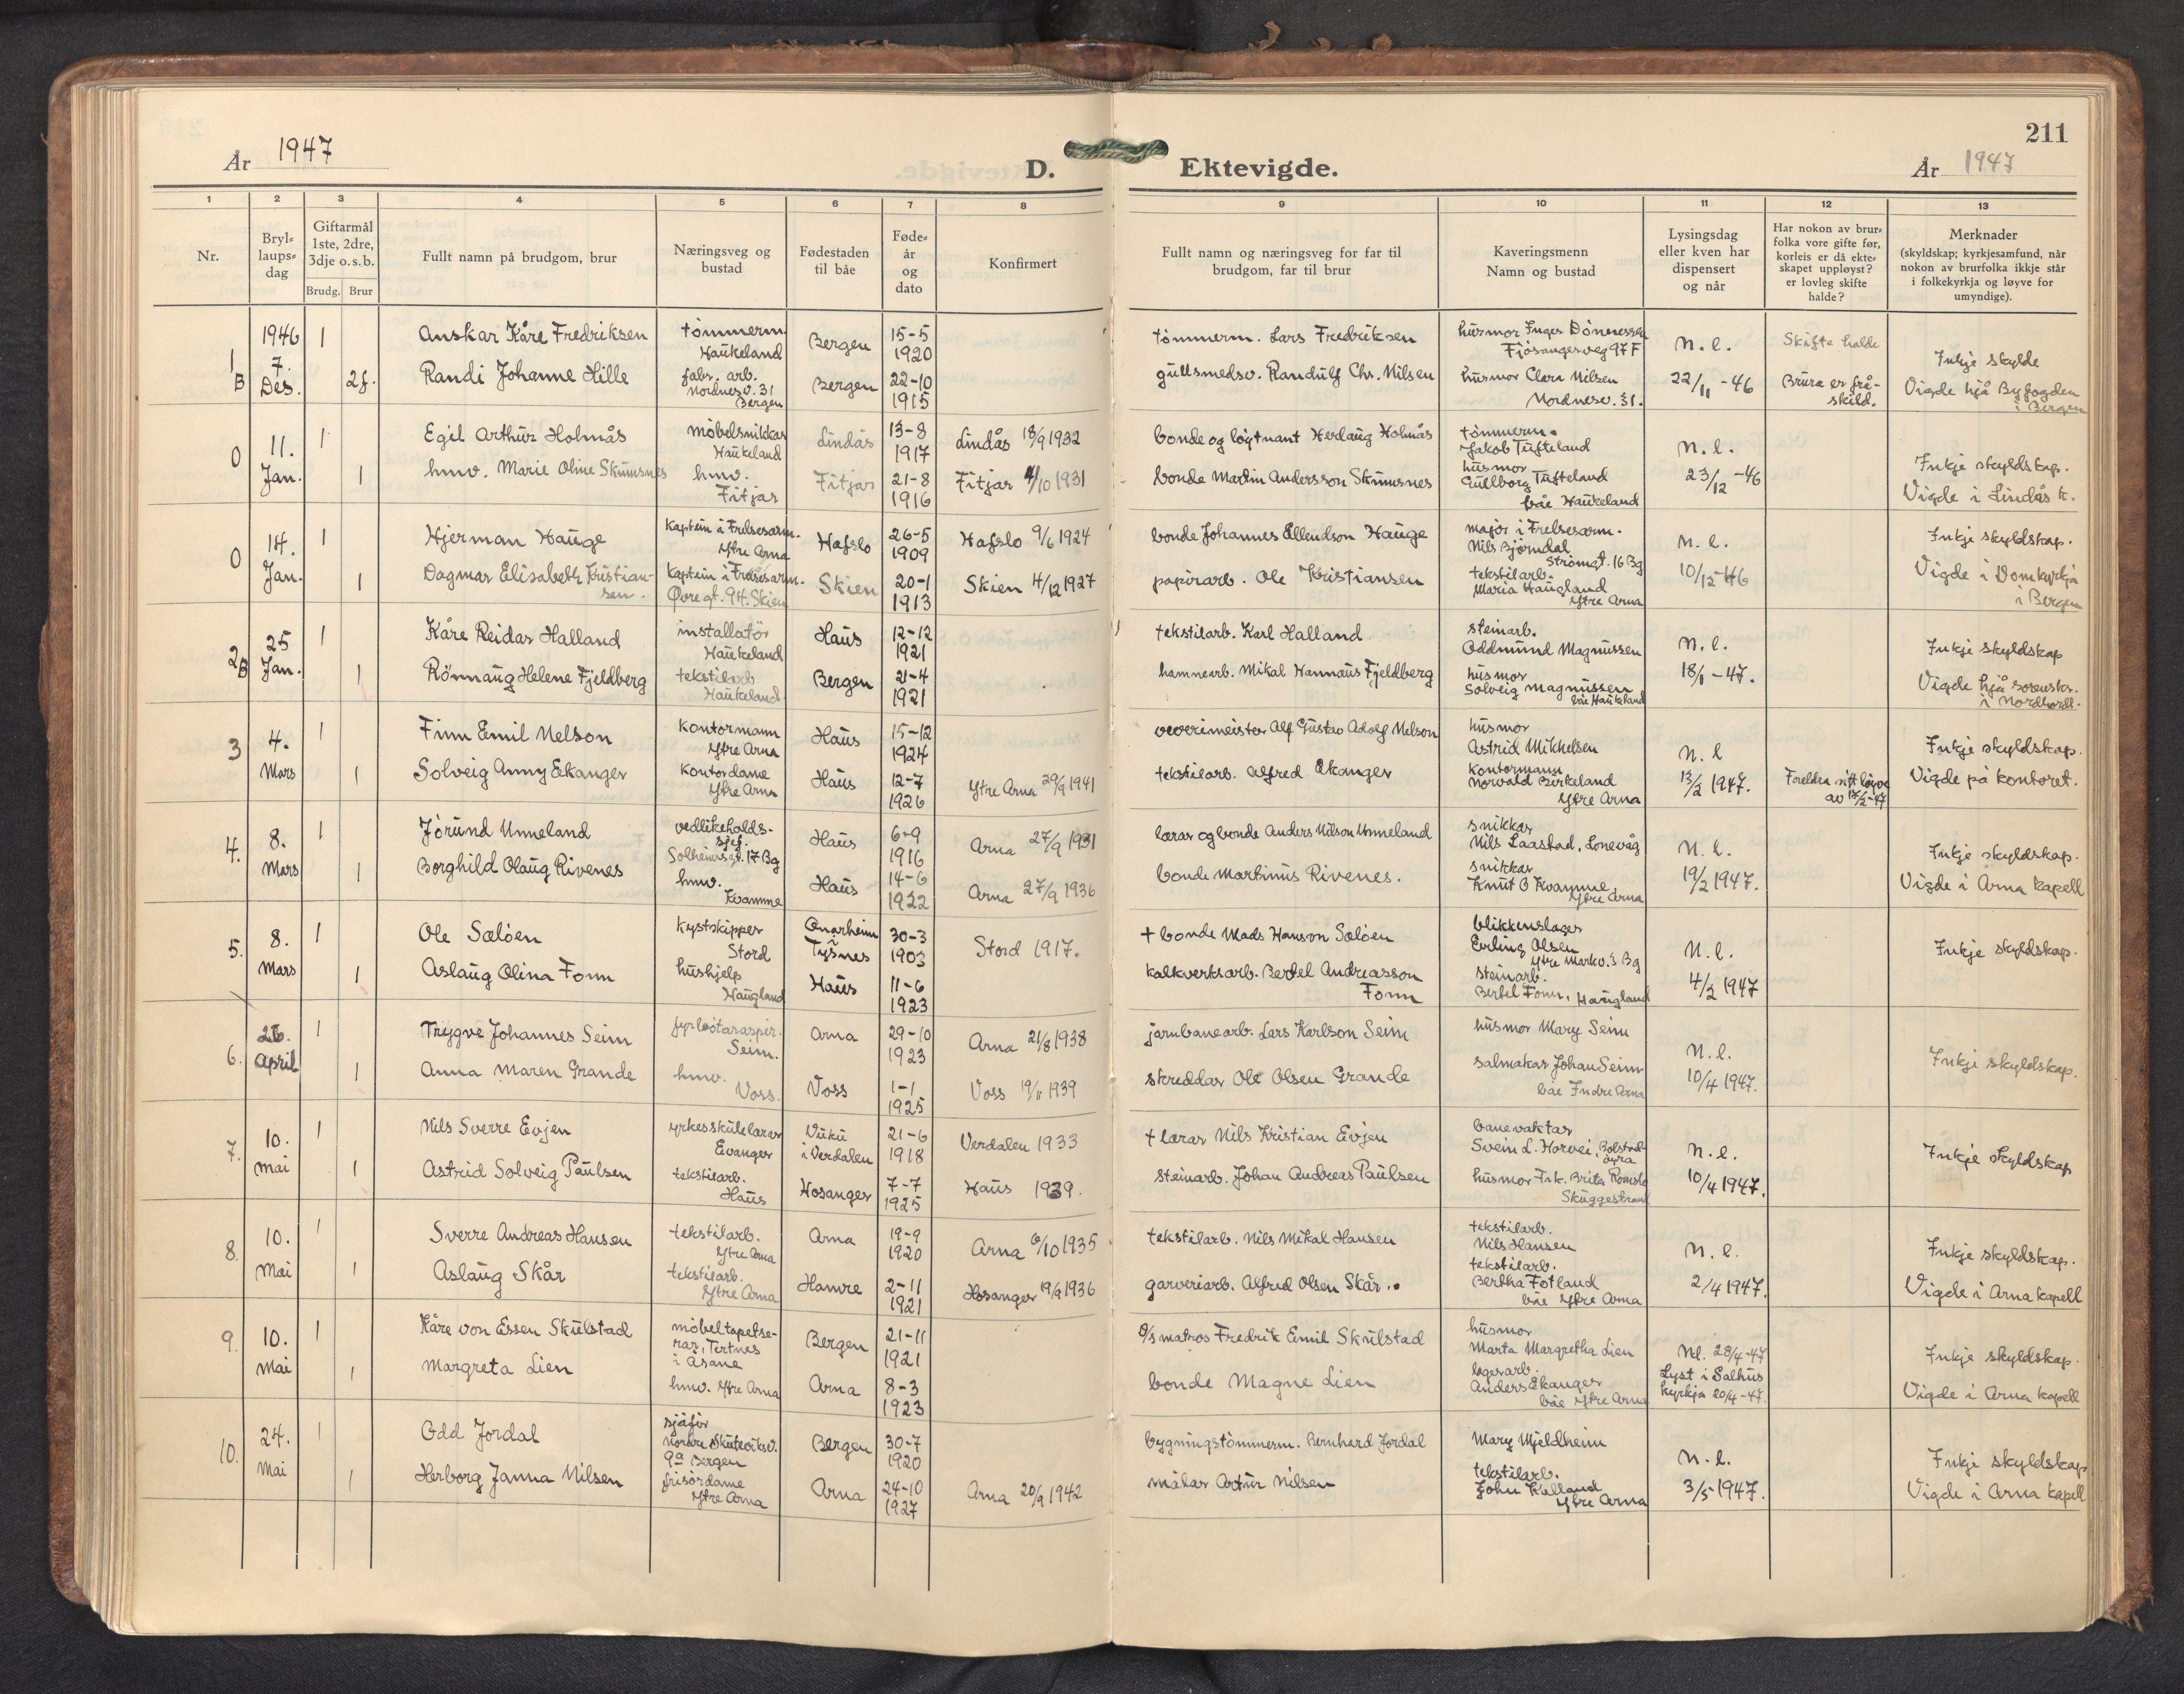 211
År 1947
D. Ektevigde.
År 1947
1 2 3 4 5 6 7 8 9 10 11 12 13
Nr.
Bryl-
laups-
dag
Giftarmål
1ste, 2dre,
3dje o.s.b.
Brudg. Brur
Fullt namn på brudgom, brur
Næringsveg og
bustad
Fødestaden
til båe
Føde-
år
og
dato
Konfirmert
Fullt namn og næringsveg for far til
brudgom, far til brur
Kaveringsmenn
Namn og bustad
Lysingsdag
eller kven har
dispensert
og når
Har nokon av brur-
folka vore gifte før,
korleis er då ekte-
skapet uppløyst?
er lovleg skifte
halde?
Merknader
(skyldskap; kyrkjesamfund, når
nokon av brurfolka ikkje står
i folkekyrkja og løyve for
umyndige).
1 B
1946
7.
Des.
1
Anskar Kåre Fredriksen
tömmerm.
Haukeland
Bergen
15-5
1920
tömmerm. Lars Fredriksen
husmor Inger Dönnessen
Fjösangerveg 97 F
N. l.
Skifte halde
Inkje skylde
2 f.
Randi Johanne Hille
fabr. arb.
Nordnesv. 31
Bergen
Bergen
22-10
1915
gullsmedsv. Randulf Chr. Nilsen
husmor Clara Nilsen
Nordnesv. 31.
22/11 - 46
Brura er frå-
skild.
Vigde hjå Byfogden
i Bergen
0
11.
Jan.
1
Egil Arthur Holmås
möbelsnikkar
Haukeland
Lindås
13-8
1917
Lindås 18/9 1932
bonde og löytnant Herlaug Holmås
tömmerm.
Jakob Tufteland
N. l.
Inkje skyldskap.
1
hmv. Marie Oline Skumsnes
hmv.
Fitjar
Fitjar
21-8
1916
Fitjar 4/10 1931
bonde Martin Andersson Skumsnes
husmor
Gullborg Tufteland
båe Haukeland
23/12 -46
Vigde i Lindås k.
0
14.
Jan.
1
Hjerman Hauge
Kaptein i Frelsesarm.
Ytre Arna
Hafslo
26-5
1909
Hafslo 9/6 1924
bonde Johannes Ellendson Hauge
major i Frelsesarm.
Nils Bjørndal
Strømgt. 16 Bg
N. l.
Inkje skyldskap.
1
Dagmar Elisabeth Kristian-
sen.
Kaptein i Frelsesarm.
Øvregt. 94. Skien
Skien
20-1
1913
Skien 4/12 1927
papirarb. Ole Kristiansen
tekstilarb.
Maria Haugland
Ytre Arna
10/12 -46
Vigde i Domkyrkja
i Bergen
2 B
25
Jan.
1
Kåre Reidar Halland
installatör
Haukeland
Haus
12-12
1921
tekstilarb. Karl Halland
steinarb.
Oddmund Magnussen
N. l.
Inkje skyldskap
1
Rönnaug Helene Fjeldberg
tekstilarb
Haukeland
Bergen
21-4
1921
hamnearb. Mikal Hannaus Fjeldberg
husmor
Solveig Magnussen
båe Haukeland
18/1 - 47.
Vigde hjå sorenskr.
i Nordhordl.
3
4.
Mars
1
Finn Emil Nelson
Kontormann
Ytre Arna
Haus
15-12
1924
veverimeister Alf Gustav Adolf Nelson
husmor
Astrid Mikkelsen
N. l
Inkje skyldskap.
1
Solveig Anny Ekanger
Kontordame
Ytre Arna
Haus
12-7
1926
Ytre Arna 29/9 1941
tekstilarb. Alfred Ekanger
Kontormann
Norvald Birkeland
Ytre Arna
13/2 1947.
Foreldra sitt löyve
av 12/2-47
Vigde på kontoret.
4.
8.
Mars
1
Jörund Unneland
vedlikeholds-
sjef.
Solheimsgt. 17 Bg
Haus
6-9
1916
Arna 27/9 1931
lærar og bonde Anders Nilson Unneland
snikkar
Nils Laastad, Lonevåg
N. l.
Inkje skyldskap.
1
Borghild Olaug Rivenes
hmv.
Kvamme
Haus
14-6
1922
Arna 27/9 1936
bonde Martinus Rivenes.
snikkar
Knut O Kvamme
Ytre Arna
19/2 1947.
Vigde i Arna kapell
5.
8.
Mars
1
Ole Sælöen
kystskipper
Stord
Onarheim
Tysnes
30-3
1903
Stord 1917.
+ bonde Mads Hanson Sælöen
blikkenslager
Erling Olsen
Ytre Markv. 3 Bg
N. l.
Inkje skyldskap.
1
Aslaug Olina Fonn
hushjelp
Haugland
Haus
11-6
1923
kalkverksarb. Bertel Andreasson
Fonn
steinarb.
Bertel Fonn, Haugland
4/2 1947
6.
26.
April
1
Trygve Johannes Seim
fyrbötaraspir.
Seim.
Arna
29-10
1923
Arna 21/8 1938
jarnbanearb. Lars Karlson Seim
husmor Mary Seim
N. l.
Inkje skyldskap.
1
Anna Maren Grande
hmv.
Voss.
Voss
1-1
1925
Voss 19/11 1939
skreddar Ole Olsen Grande
salmakar Johan Seim
båe Indre Arna
10/4 1947.
7.
10.
Mai
1
Nils Sverre Evjen
yrkesskulelærar
Evanger
Vuku
i Verdalen
21-6
1918
Verdalen 1933
+ lærar Nils Kristian Evjen
banevaktar
Svein L. Horvei, Bolstad-
öyra
N. l.
Inkje skyldskap
1
Astrid Solveig Paulsen
tekstilarb.
Haus
Hosanger
7-7
1925
Haus 1939.
steinarb. Johan Andreas Paulsen
husmor Frk. Brita Romslo
Skuggestrand
10/4 1947.
8.
10.
Mai
1
Sverre Andreas Hansen
tekstilarb.
Ytre Arna
Arna
19-9
1920
Arna 6/10 1935
tekstilarb. Nils Mikal Hansen
tekstilarb.
Nils Hansen
N. l.
Inkje skyldskap.
1
Aslaug Skår
tekstilarb.
Ytre Arna
Hamre
2-11
1921
Hosanger 19/9 1936
garveriarb. Alfred Olsen Skår.
tekstilarb.
Bertha Fotland
båe Ytre Arna
2/4 1947.
Vigde i Arna kapell
9.
10.
Mai
1
Kåre von Essen Skulstad
möbeltapetse-
rar, Tertnes
i Åsane
Bergen
21-11
1921
matros Fredrik Emil Skulstad
husmor
Marta Margretha Lien
Nl. 28/4-47
Inkje skyldskap.
1
Margreta Lien
hmv. Ytre Arna
Arna
8-3
1923
bonde Magne Lien
lagerarb.
Anders Ekanger
båe Ytre Arna
Lyst i Salhus
kyrkja 20/4-47.
Vigde i Arna kapell
10.
24.
Mai
1
Odd Jordal
sjåför
Nordre Skuteviksv.
9a Bergen
Bergen
30-7
1920
bygningstömmerm. Bernhard Jordal
Mary Mjeldheim
N. l.
Inkje skyldskap
1
Herborg Janna Nilsen
frisördame
Ytre Arna
Arna
24-10
1927
Arna 20/9 1942
målar Artur Nilsen
tekstilarb.
John Kalland
Ytre Arna
3/5 1947.
Vigde i Arna kapell